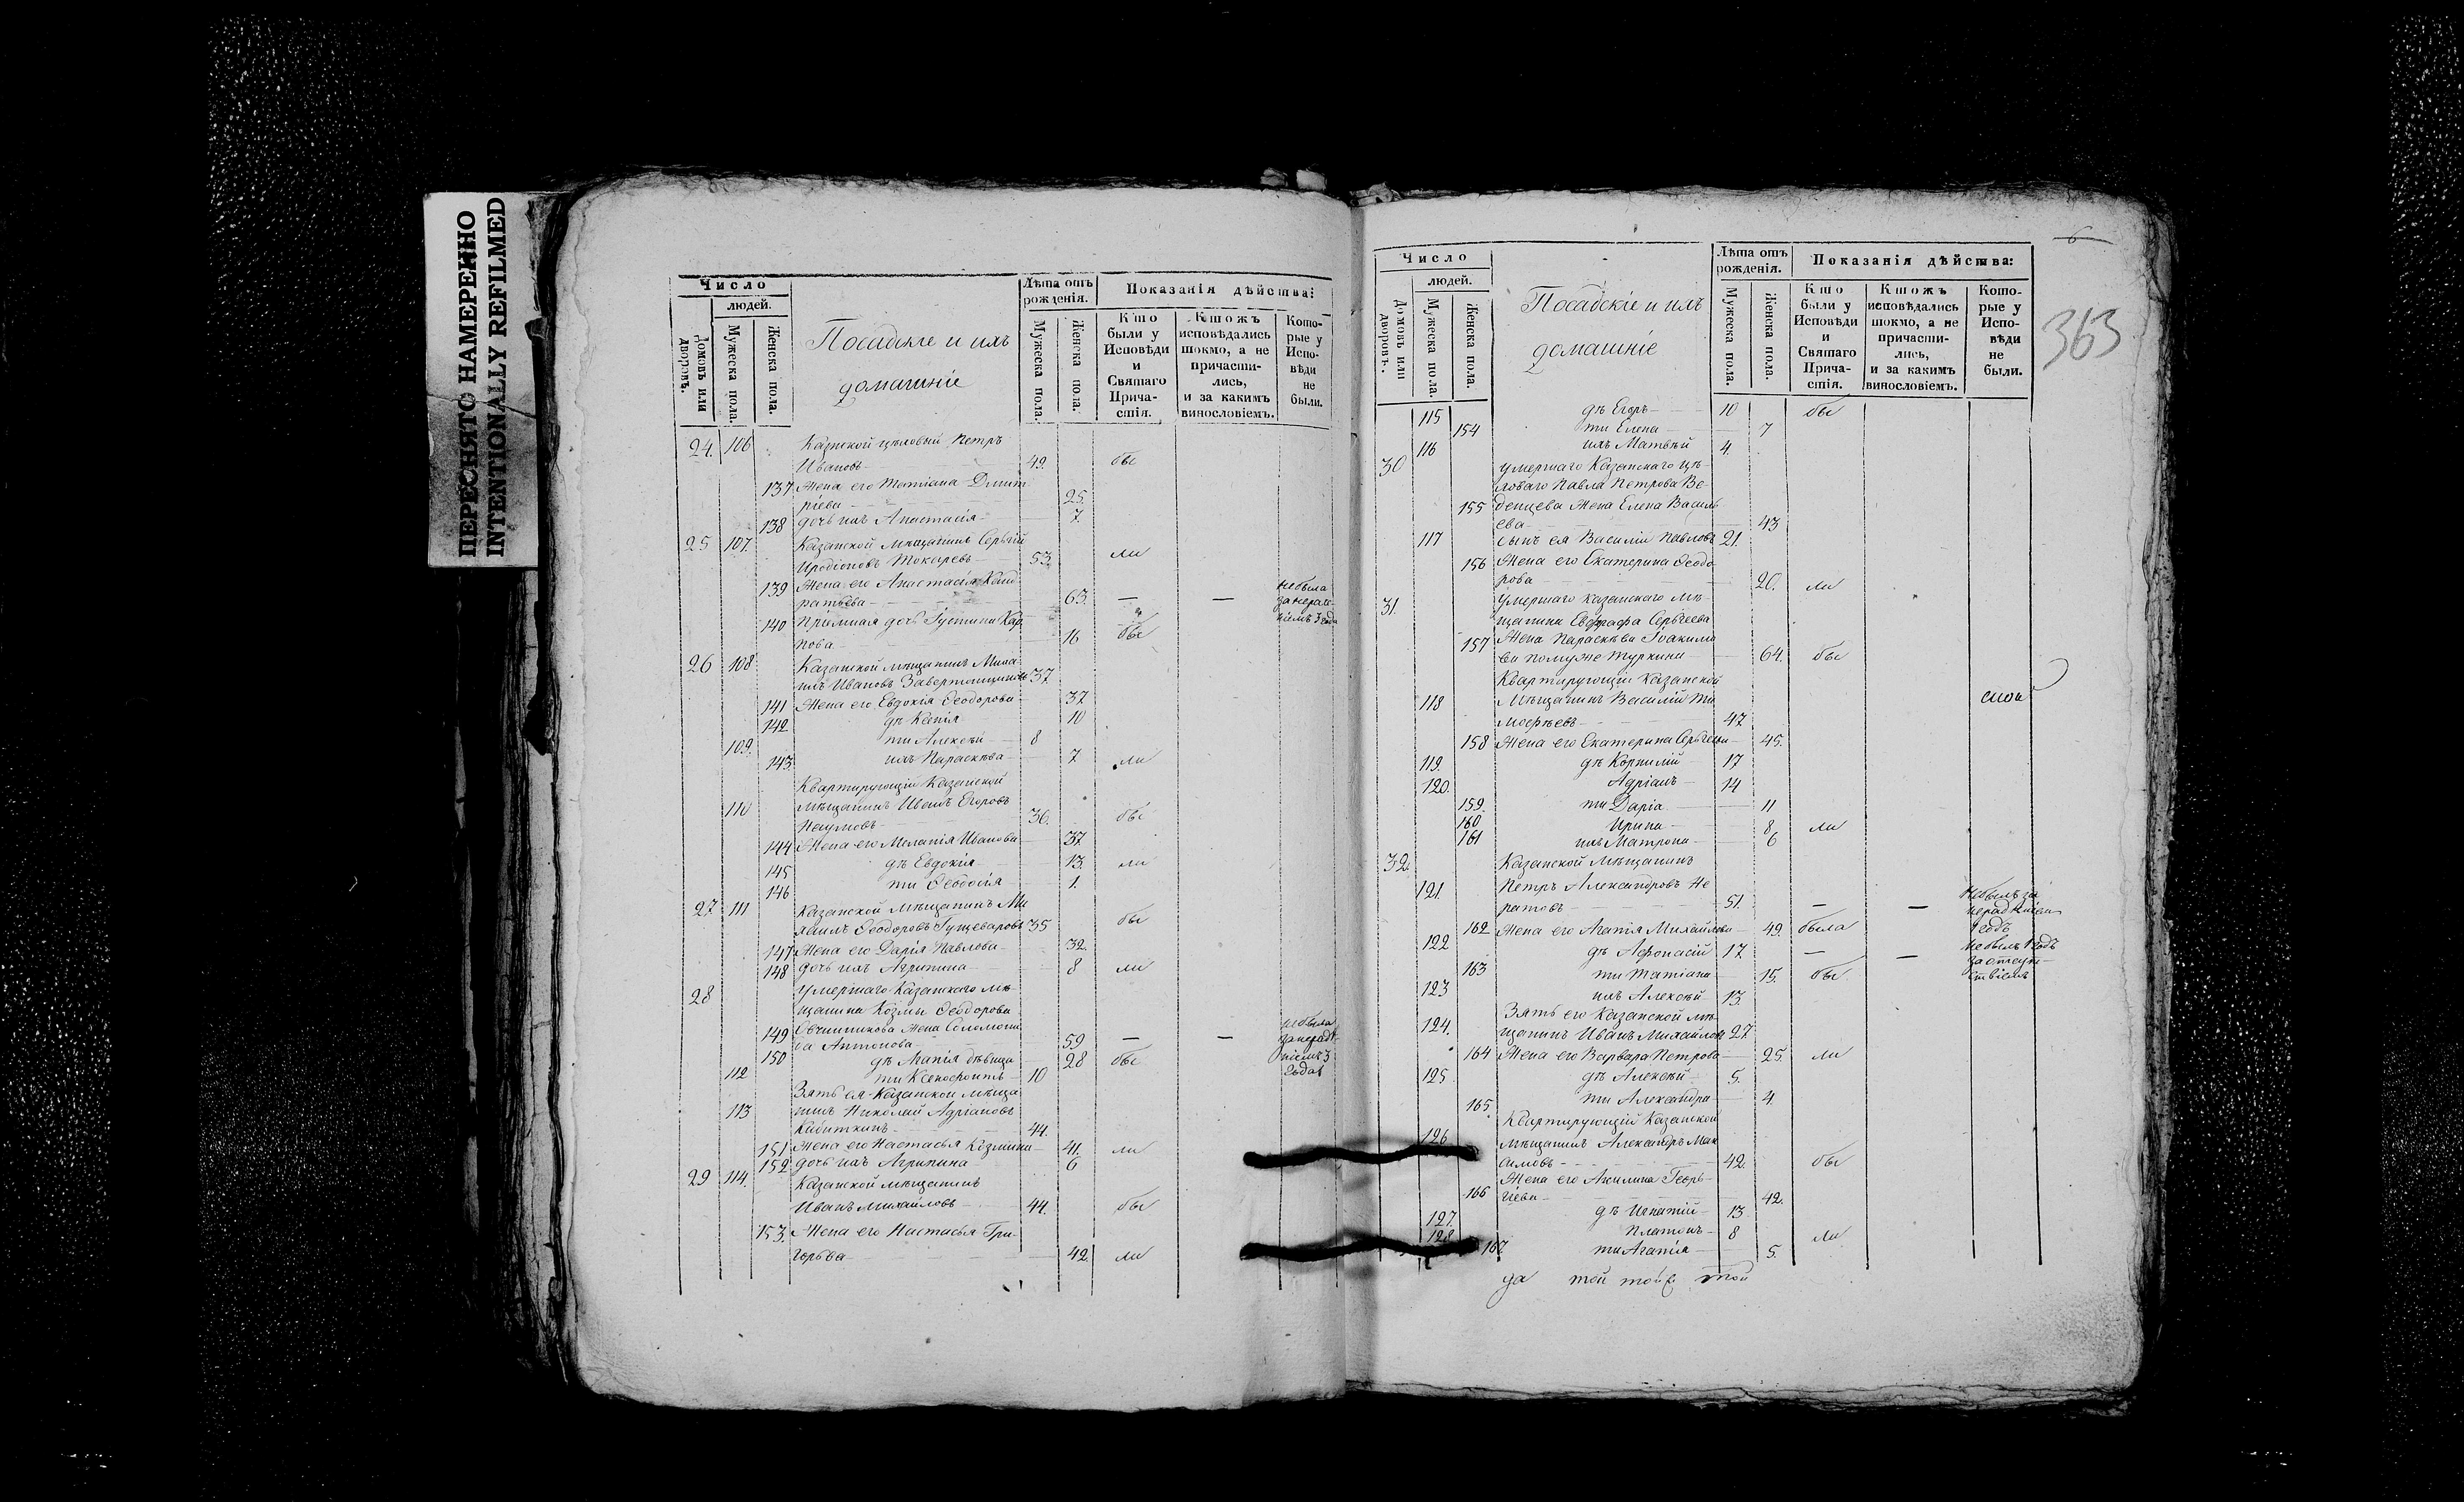 ПЕРЕСНЯТО НАМЕРЕННО
INTENTIONALLY REFILMED
Число
людей.
Домовъ или дворовъ.
Мужеска пола.
Женска пола.
Посадскіе и ихъ
домашніе
Лѣта отъ рожденія.
Мужеска пола.
Женска пола.
Показанія дѣйства:
Кто были у Исповѣди и Святаго Причастія.
Ктожъ исповѣдались токмо, а не причастились, и за какимъ винословіемъ.
Которые у Исповѣди не были.
24. 106 Казанской цеховый Петръ
Ивановъ 49. бы
137 Жена его Татіана Дмит
ріева 25.
138 дочь ихъ Анастасія 7.
25 107. Казанской мѣщанинъ Сергѣй
Иродіоновъ Токаревъ 53. ли
139 Жена его Анастасія Конд
ратьева 63. — — не была
за нерадѣ
ніемъ 3 года
140 Пріемная дочь Іустина Кар
пова 16 бы
26 108 Казанской мѣщанинъ Миха
илъ Ивановъ 37.
141 Жена его Евдокія Ѳеодорова 37.
142 дѣ Ксенія 10
109. ти Алексѣй 8
143 ихъ Параскѣва 7 ли
Квартирующій Казанской
110 мѣщанинъ Иванъ Егоровъ
Наумовъ 36. бы
144 Жена его Меланія Иванова 37.
145 дѣ Евдокія 13. ли
146 ти Ѳеодосія 1.
27. 111 Казанской мѣщанинъ Ми
хаилъ Ѳеодоровъ 35 бы
147 Жена его Дарія Павлова 32.
148 дочь ихъ Агрипина 8 ли
28 Умершаго Казанскаго мѣ
щанина Козмы Ѳеодорова
149 Овчинникова жена Соломони
да Антонова 59 — — не была
за нерадѣ
ніемъ 3
года
150 дѣ Агапія дѣвица 28 бы
112 ти Ксенофонтъ 10
Зять ея Казанской мѣща
113 нинъ Николай Адріановъ
Кибиткинъ 44.
151 Жена его Настасья Козмина 41. ли
152 дочь ихъ Агрипина 6
29 114. Казанской мѣщанинъ
Иванъ Михайловъ 44. бы
153. Жена его Настасья Гри
горьева 42. ли
6
363
Число
людей.
Домовъ или дворовъ.
Мужеска пола.
Женска пола.
Посадскіе и ихъ
домашніе
Лѣта отъ рожденія.
Мужеска пола.
Женска пола.
Показанія дѣйства:
Кто были у Исповѣди и Святаго Причастія.
Ктожъ исповѣдались токмо, а не причастились, и за какимъ винословіемъ.
Которые у Исповѣди не были.
115 дѣ Егоръ 10 бы
154 ти Елена 7
116 ихъ Матвѣй 4.
30 Умершаго Казанскаго це
ховаго Павла Петрова Ве
155 денцева жена Елена Василь
ева 43
117 сынъ ея Василій Павловъ 21.
156 Жена его Екатерина Ѳеодо
рова 20. ли
31. Умершаго Казанскаго мѣ
щанина Евграфа Сергѣева
157 Жена Параскѣва Іоакимо
ва помуже Туркина 64. бы
Квартирующій Казанской
118 мѣщанинъ Василій Ти
моѳѣевъ 47
158 Жена его Екатерина Сергѣева 45.
119. дѣ Корнилій 17
120. Адріанъ 14
159. ти Дарія 11
160 Ирина 8 ли
161 ихъ Матрона 6
32. Казанской мѣщанинъ
121. Петръ Александровъ Не
ратовъ 51. — — не былъ за
нерадѣніем
1 годъ
162 Жена его Агапія Михайлова 49. была
122 дѣ Афонасій 17 — — не былъ 1 годъ
за отсут
ствіемъ
163 ти Татіана 15. бы
123 ихъ Алексѣй 13.
Зять его Казанской мѣ
124. щанинъ Иванъ Михайловъ 27.
164 Жена его Варвара Петрова 25. ли
125. дѣ Алексѣй 5.
165. ти Александра 4.
Квартирующій Казанской
126 мѣщанинъ Александръ Мак
симовъ 42. бы
Жена его Акилина Геор
166 гіева 42.
127. дѣ Игнатій 13
128 Платонъ 8 ли
167 ти Агапія 5.